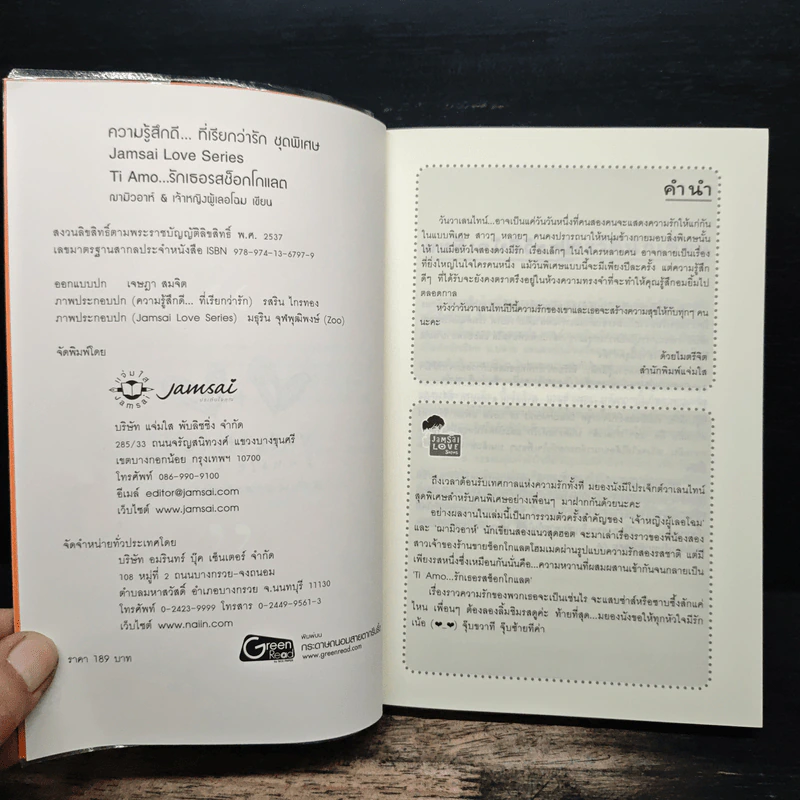 ความรู้สึกดี... ที่เรียกว่ารัก ชุดพิเศษ
Jamsai Love Series
Ti Amo...รักเธอรสช็อกโกแลต
ฌามิวอาห์ & เจ้าหญิงผู้เลอโฉม เขียน
สงวนลิขสิทธิ์ตามพระราชบัญญัติลิขสิทธิ์ พ.ศ. 2537
เลขมาตรฐานสากลประจำหนังสือ ISBN 978-974-13-6797-9
ออกแบบปก เจษฎา สมจิต
ภาพประกอบปก (ความรู้สึกดี... ที่เรียกว่ารัก) รสริน ไกรทอง
ภาพประกอบปก (Jamsai Love Series) มธุริน จุฬพุฒิพงษ์ (Zoo)
จัดพิมพ์โดย
แจ่มใส
Jamsai
Jamsai
บริษัท แจ่มใส พับลิชชิ่ง จำกัด
285/33 ถนนจรัญสนิทวงศ์ แขวงบางขุนศรี
เขตบางกอกน้อย กรุงเทพฯ 10700
โทรศัพท์ 086-990-9100
อีเมล์ editor@jamsai.com
เว็บไซต์ www.jamsai.com
จัดจำหน่ายทั่วประเทศโดย
บริษัท อมรินทร์ บุ๊ค เซ็นเตอร์ จำกัด
108 หมู่ที่ 2 ถนนบางกรวย-จงถนอม
ตำบลมหาสวัสดิ์ อำเภอบางกรวย จ.นนทบุรี 11130
โทรศัพท์ 0-2423-9999 โทรสาร 0-2449-9561-3
เว็บไซต์ www.naiin.com
Green Read
พิมพ์บน
กระดาษถนอมสายตากรีนรี้ด
www.greenread.com
ราคา 189 บาท
คำนำ
วันวาเลนไทน์...อาจเป็นแค่วันวันหนึ่งที่คนสองคนจะแสดงความรักให้แก่กัน
ในแบบพิเศษ สาวๆ หลายๆ คนคงปรารถนาให้หนุ่มข้างกายมอบสิ่งพิเศษนั้น
ให้ ในเมื่อหัวใจสองดวงมีรัก เรื่องเล็กๆ ในใจใครหลายคน อาจกลายเป็นเรื่อง
ที่ยิ่งใหญ่ในใจใครคนหนึ่ง แม้วันพิเศษแบบนี้จะมีเพียงปีละครั้ง แต่ความรู้สึก
ดีๆ ที่ได้รับจะยังคงตราตรึงอยู่ในห้วงความทรงจำที่จะทำให้คุณรู้สึกอมยิ้มไป
ตลอดกาล
หวังว่าวันวาเลนไทน์ปีนี้ความรักของเขาและเธอจะสร้างความสุขให้กับทุกๆ คน
นะคะ
ด้วยไมตรีจิต
สำนักพิมพ์แจ่มใส
JAMSAI
LOVE
SERIES
ถึงเวลาต้อนรับเทศกาลแห่งความรักทั้งที มยองนังมีโปรเจ็กต์วาเลนไทน์
สุดพิเศษสำหรับคนพิเศษอย่างเพื่อนๆ มาฝากกันด้วยนะคะ
อย่างผลงานในเล่มนี้เป็นการรวมตัวครั้งสำคัญของ 'เจ้าหญิงผู้เลอโฉม'
และ 'ฌามิวอาห์' นักเขียนสองแนวสุดฮอต จะมาเล่าเรื่องราวของพี่น้องสอง
สาวเจ้าของร้านขายช็อกโกแลตโฮมเมดผ่านรูปแบบความรักสองรสชาติ แต่มี
เพียงรสหนึ่งซึ่งเหมือนกันนั่นคือ...ความหวานที่ผสมผสานเข้ากันจนกลายเป็น
'Ti Amo...รักเธอรสช็อกโกแลต'
เรื่องราวความรักของพวกเธอจะเป็นเช่นไร จะแสบซ่าส์หรือซาบซึ้งสักแค่
ไหน เพื่อนๆ ต้องลองลิ้มชิมรสดูค่ะ ท้ายที่สุด...มยองนังขอให้ทุกหัวใจมีรัก
เน้อ (❤_❤) จุ๊บขวาที จุ๊บซ้ายทีค่า